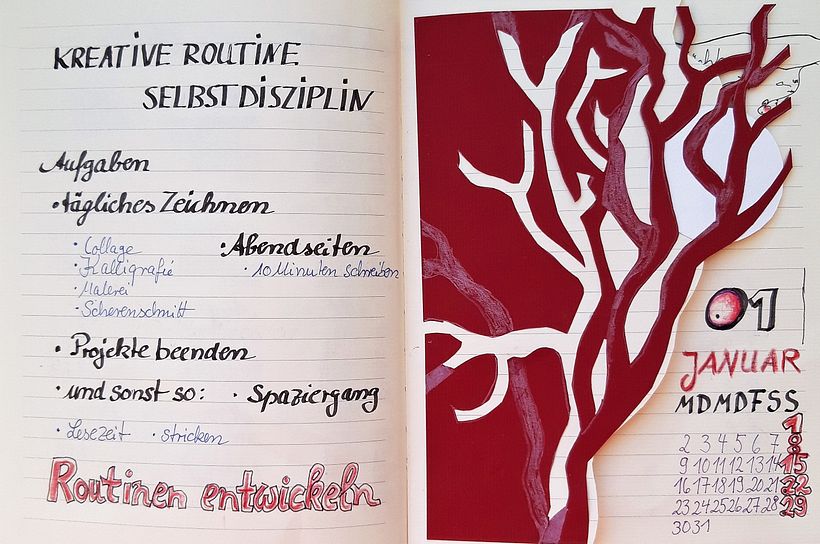 KREATIVE ROUTINE
SELBSTDISZIPLIN
Aufgaben
• tägliches Zeichnen
• Collage
• Kalligrafie
• Malerei
• Scherenschnitt
• Abendseiten
• 10 Minuten schreiben
• Projekte beenden
• und sonst so: • Spaziergang
• Lesezeit • stricken
Routinen entwickeln
01
JANUAR
M D M D F S S
1
2 3 4 5 6 7 8
9 10 11 12 13 14 15
16 17 18 19 20 21 22
23 24 25 26 27 28 29
30 31